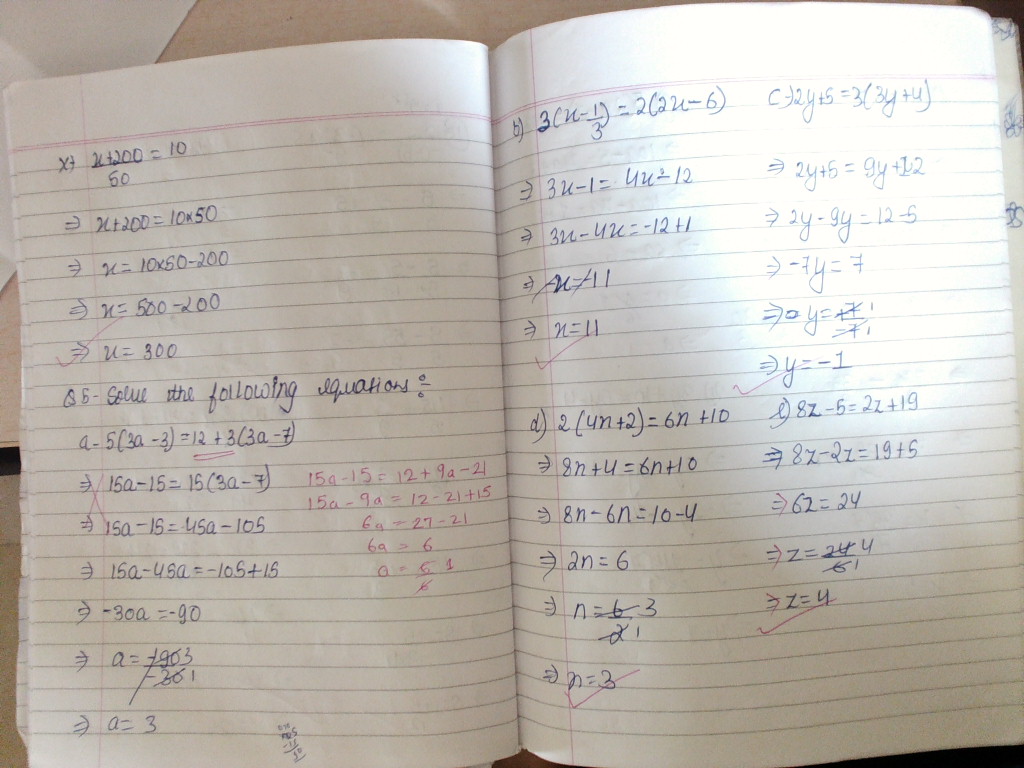 x) x+200/50 = 10
⇒ x+200 = 10×50
⇒ x = 10×50-200
⇒ x = 500-200
⇒ x = 300
Q5- Solve the following equations:
a- 5(3a-3) = 12+3(3a-7)
⇒ 15a-15 = 15(3a-7)
⇒ 15a-15 = 45a-105
⇒ 15a-45a = -105+15
⇒ -30a = -90
⇒ a = -90 3/-30 1
⇒ a = 3
15a-15 = 12+9a-21
15a-9a = 12-21+15
6a = 27-21
6a = 6
a = 6/6 1
b) 3(x-1/3) = 2(2x-6)
⇒ 3x-1 = 4x-12
⇒ 3x-4x = -12+1
⇒ -x = -11
⇒ x = 11
c) 2y+5 = 3(3y+4)
⇒ 2y+5 = 9y+12
⇒ 2y-9y = 12-5
⇒ -7y = 7
⇒ y = 7 1/-7 1
⇒ y = -1
d) 2(4n+2) = 6n+10
⇒ 8n+4 = 6n+10
⇒ 8n-6n = 10-4
⇒ 2n = 6
⇒ n = 6 3/2 1
⇒ n = 3
e) 8z-5 = 2z+19
⇒ 8z-2z = 19+5
⇒ 6z = 24
⇒ z = 24 4/6 1
⇒ z = 4